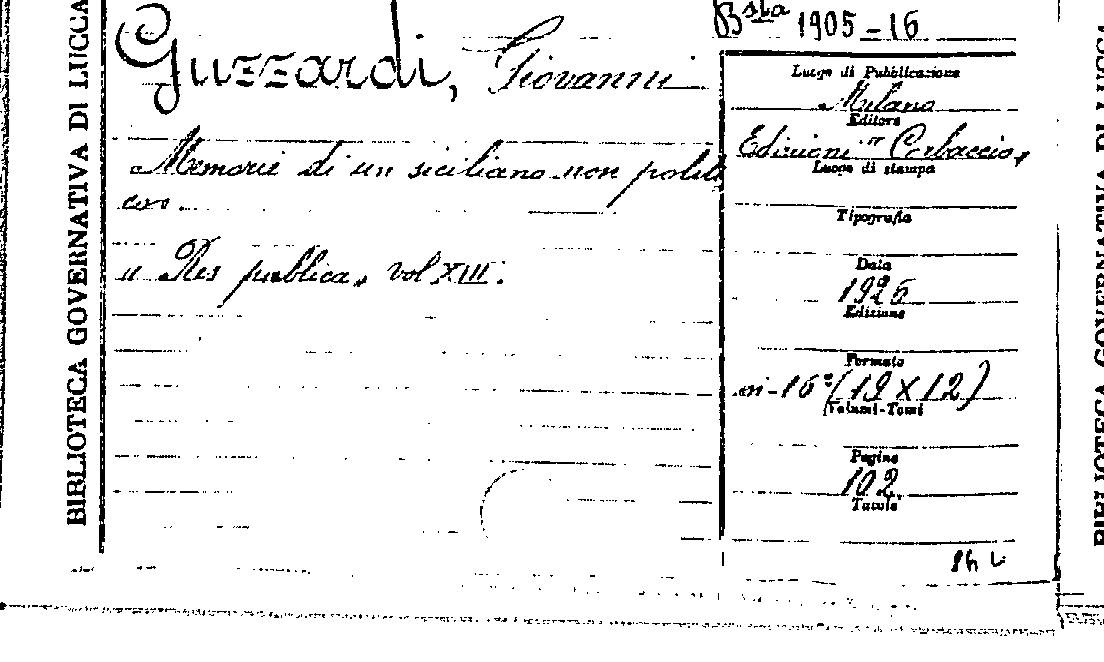 BIBLIOTECA GOVERNATIVA DI LUCCA
Guzzardi, Giovanni
Memorie di un siciliano non politi
co.
" Res publica, vol XIII.
Bsta 1905-16
Luogo di Pubblicazione
Milano
Editore
Edizioni "Corbaccio"
Luogo di stampa
Tipografia
Data
1926
Edizione
Formato
in-16°(19 X 12)
Volumi-Tomi
Pagine
102.
Tavole
BIBLIOTECA GOVERNATIVA DI LUCCA